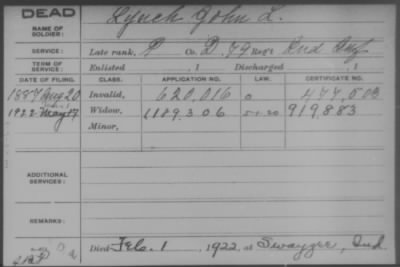 DEAD
NAME OF SOLDIER: Lynch John L.
SERVICE: Late rank, P Co. D, 79 Reg't Ind Inf
TERM OF SERVICE: Enlisted , 1 Discharged , 1
DATE OF FILING. CLASS. APPLICATION NO. LAW. CERTIFICATE NO.
1887 Aug 20 Invalid, 620,016 477,503
1922 Widow, 1189306 5-1-20 919,883
Minor,
ADDITIONAL SERVICES:
REMARKS:
Died Feb. 1, 1922, at Swayzee, Ind.